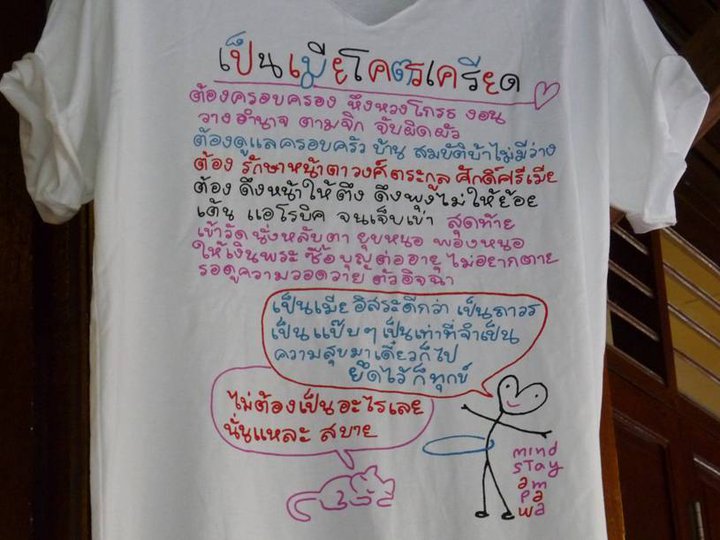 เป็นเมียโคตรเครียด
ต้องครอบครอง หึงหวงโกรธ งอน
วางอำนาจ ตามจิก จับผิดผัว
ต้องดูแลครอบครัว บ้าน สมบัติบ้าไม่มีว่าง
ต้อง รักษาหน้าตาวงศ์ตระกูล ศักดิ์ศรีเมีย
ต้อง ดึงหน้าให้ตึง ดึงพุงไม่ให้ย้อย
เต้น แอโรบิค จนเจ็บเข่า สุดท้าย
เข้าวัด นั่งหลับตา ยุบหนอ พองหนอ
ให้เงินพระ ซื้อบุญต่ออายุ ไม่อยากตาย
รอดูความวอดวาย ตัวอิจฉา
เป็นเมียอิสระดีกว่า เป็นถาวร
เป็น แป๊บๆ เป็นเท่าที่จำเป็น
ความสุขมาเดี๋ยวก็ไป
ยึดไว้ก็ทุกข์
ไม่ต้องเป็นอะไรเลย
นั่นแหละ สบาย
mind
STay
am
Pa
wa